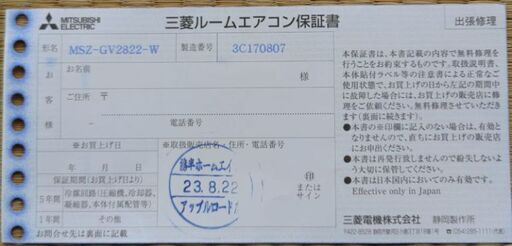 MITSUBISHI
ELECTRIC
三菱ルームエアコン保証書
出張修理
形名
MSZ-GV2822-W
製造番号
3C170807
お名前
様
お客様
ご住所 〒
様
電話番号
※お買上げ日
※取扱販売店名・住所・電話番号
年 月 日
保証期間(お買上げ日から)
5年間
冷媒回路(圧縮機、冷却器、
凝縮器、本体付属配管等)
1年間
その他
23.8.22
アップルロード
印
または
サイン
お問合せ先は裏面に記載
本保証書は、本書記載の内容で無料修理を
行うことをお約束するものです。取扱説明書、
本体貼付ラベル等の注意書による正常なご
使用状態で、お買上げの日から左記の期間中
に故障した場合には、お買上げの販売店に修
理をご依頼ください。無料修理させていただき
ます(裏面に続きます)。
●本書の※印欄に記入のない場合は、有効と
なりませんので、直ちにお買上げの販売店
にお申出ください。
●本書は再発行致しませんので紛失しないよ
う大切に保管してください。
●本書は日本国内においてのみ有効です。
Effective only in Japan
三菱電機株式会社 静岡製作所
〒422-8528